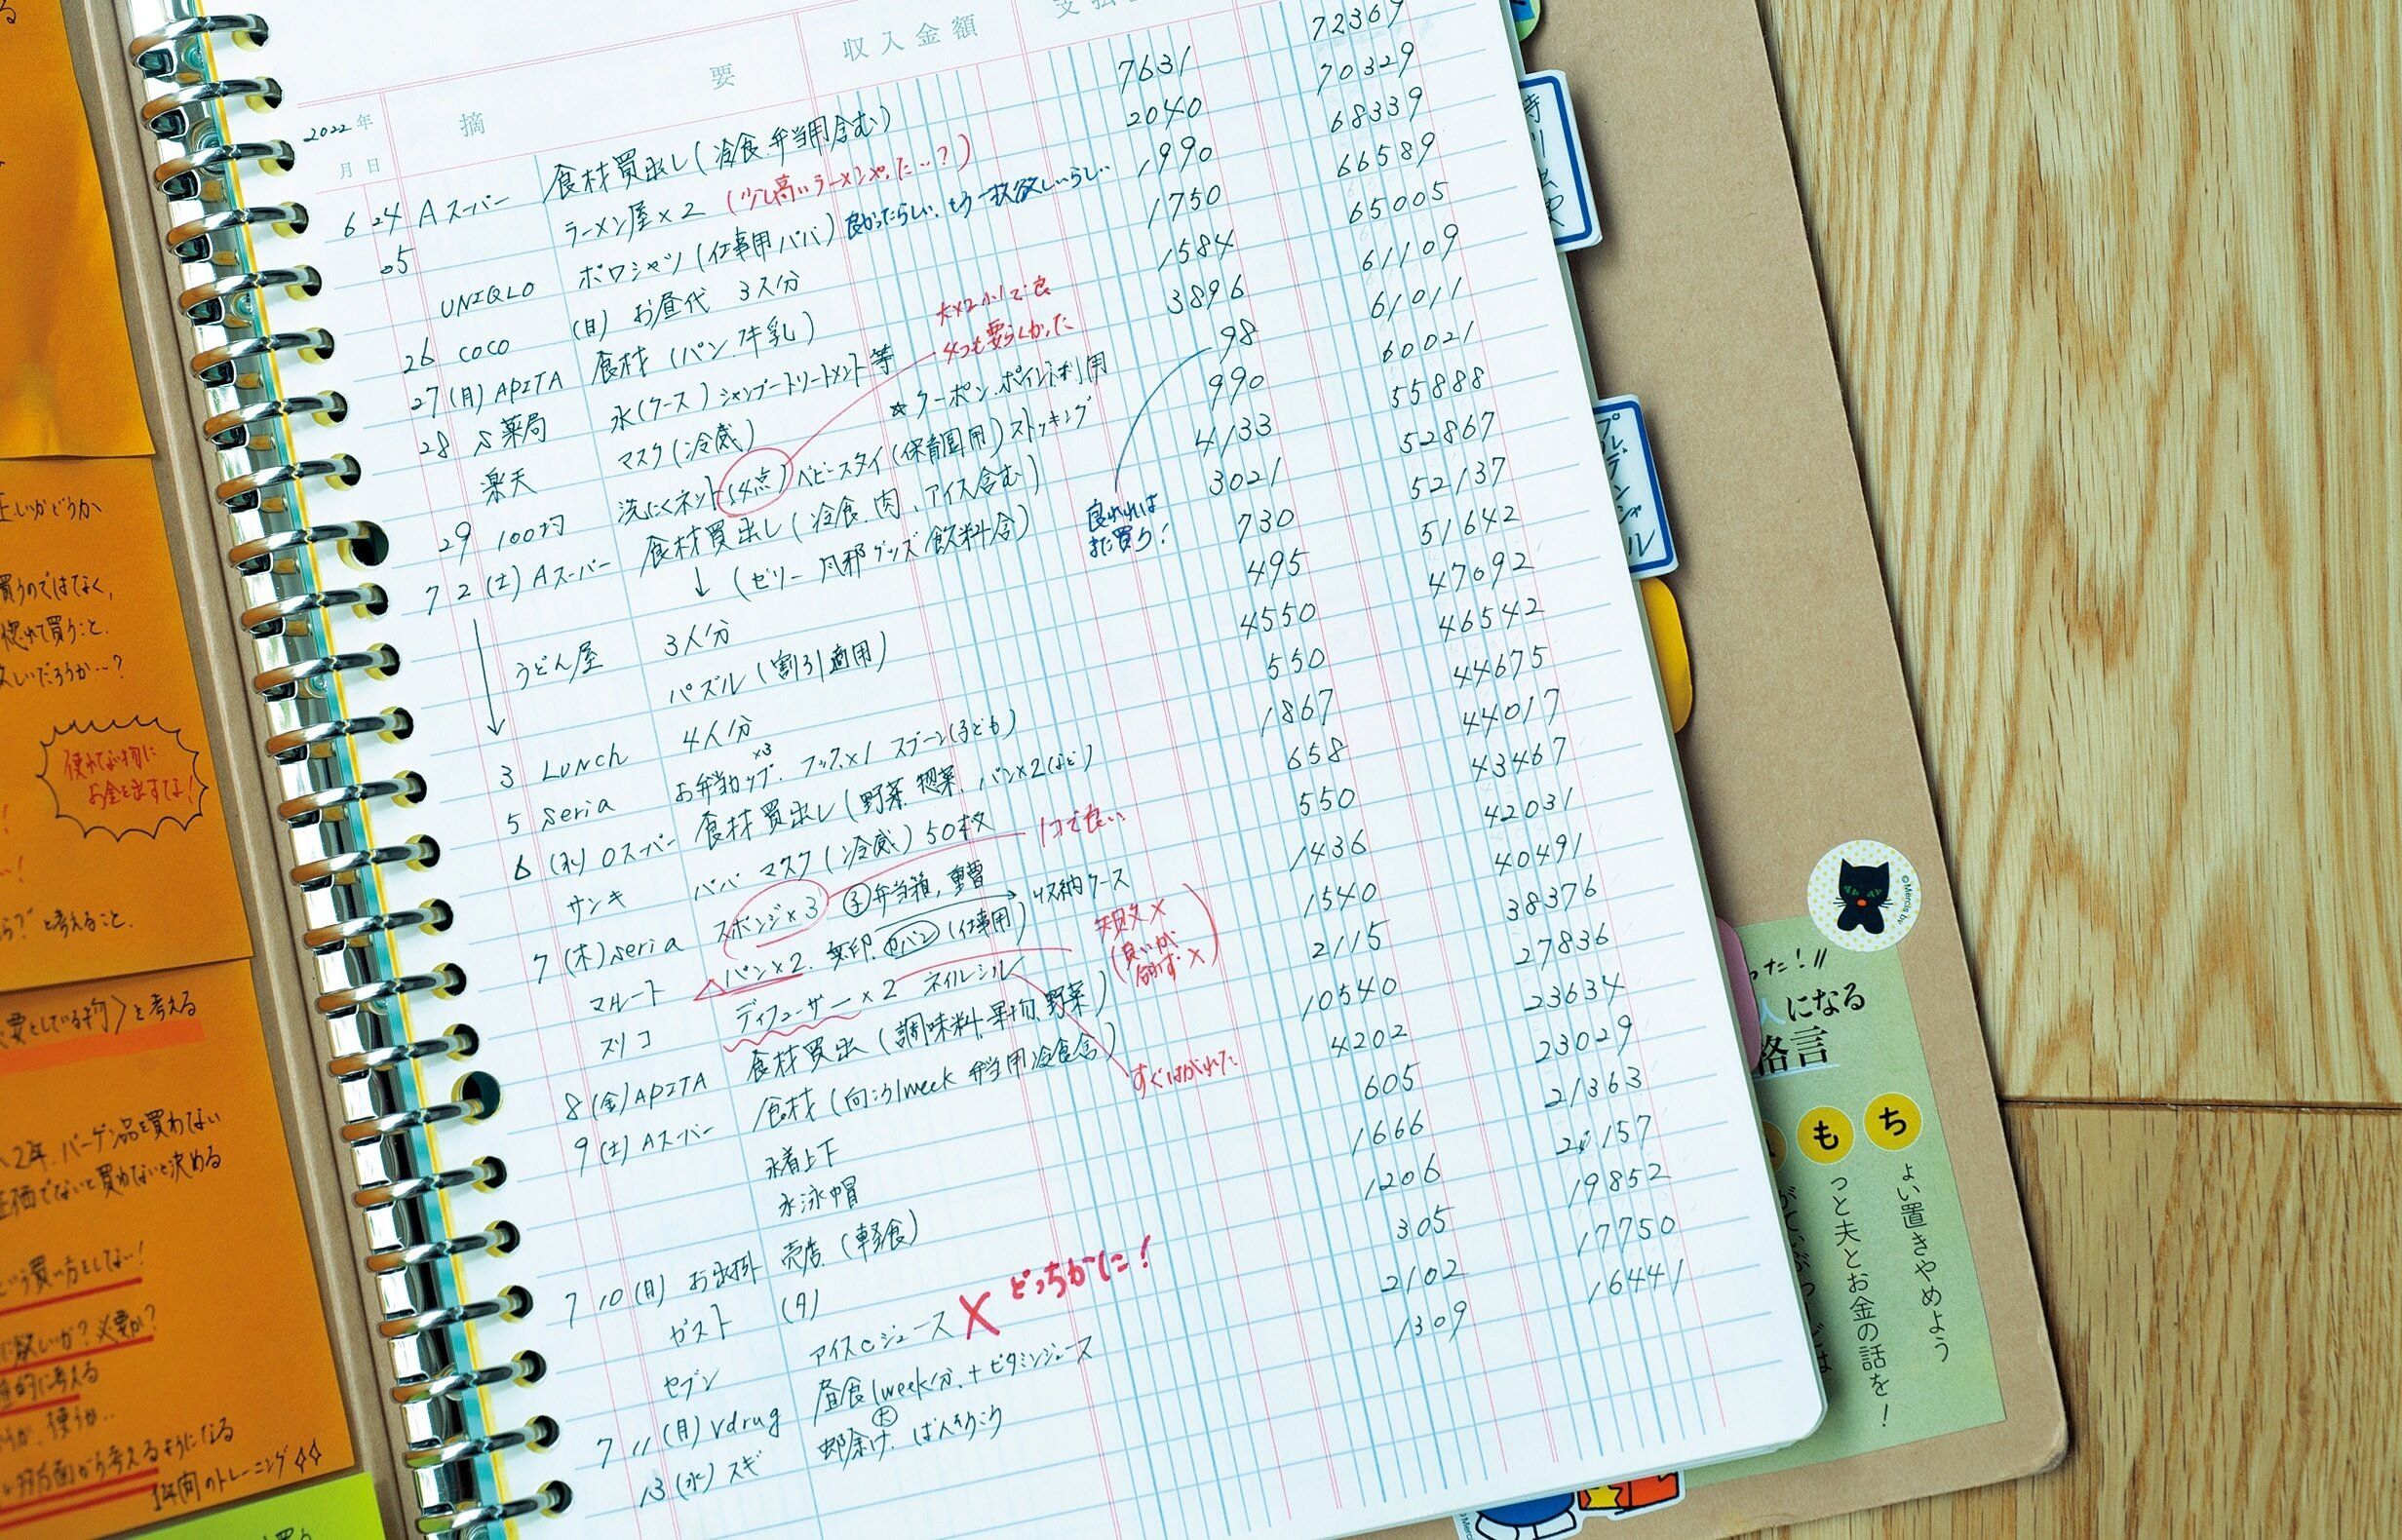 収入金額
摘 要
2022年
月 日
6 24 Aスーパー 食材買出し(冷食 弁当用含む) 7631 72369
25 ラーメン屋×2 (少し高いラーメンやった…?) 2040 70329
UNIQLO ポロシャツ(仕事用パパ) 良かったらしい、もう一枚欲しいらしい… 1990 68339
26 COCO (日) お昼代 3人分 1750 66589
27(月) APITA 食材(パン、牛乳) 1584 65005
28 S薬局 水(ケース)シャンプートリートメント等 3896 61109
楽天 マスク(冷感) ☆クーポン、ポイント利用 98 61011
29 100均 洗たくネット(4点) ベビースタイ(保育園用)ストッキング 990 60021
大×2小1で良
4つも要らんかった
7 2(土) Aスーパー 食材買出し(冷食、肉、アイス含む) 4133 55888
↓ (ゼリー 風邪グッズ 飲料含) 3021 52867
良ければ
また買う!
うどん屋 3人分 730 52137
パズル(割引適用) 495 51642
3 LUNCH 4人分 4550 47092
5 Seria お弁当カップ×3、フック×1 スプーン(子ども) 550 46542
6 (水) Oスーパー 食材買出し(野菜、惣菜、パン×2(など) 1867 44675
サンキ パパ マスク(冷感)50枚 658 44017
7(木) Seria スポンジ×3 子弁当箱、重曹 550 43467
1コで良い
マルート パン×2、無印、カバン(仕事用) 収納ケース 1436 42031
スリコ ディフューザー×2 ネイルシール 1540 40491
失敗×
(良いが
合わず×)
すぐはがれた
8(金) APITA 食材買出(調味料、果物、野菜) 2115 38376
9(土) Aスーパー 食材(向こう1week 弁当用冷食含) 10540 27836
水着上下 4202 23634
水泳帽 605 23029
7 10(日) お出掛 売店(軽食) 1666 21363
ガスト (夕) 1206 20157
セブン アイスcジュース × どっちかに! 305 19852
7 11(月) Vdrug 昼食1week分、+ビタミンジュース 2102 17750
13(水) スギ 虫除け 大、ばんそうこう 1309 16441
プルデンシャル
正しいかどうか
買うのではなく、
惚れて買うこと。
使わない物に
お金を出すな!
と考えること。
要としている物〉と考える
2年、バーゲン品を買わない
正価でないと買わないと決める
という買い方をしない!
欲しいか?必要か?
的に考える
使うか…
多方面から考えるようになる
1年間のトレーニング
った!!
人になる
格言
ち
よい置きやめよう
も
っと夫とお金の話を!
© Mercis bv